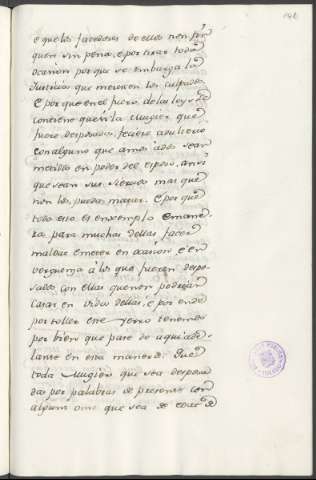 e que los facedores de ellas non sin
quen sin pena, e por tirar toda
ocasion porque se embarga la
Justicia que merecen los culpados
E porque en el fuero de las leyes se
contiene que si la Muger que
fuere desposada ficiere adulterio
con alguno que amos ados sean
metidos en poder del esposo, ansi
que sean sus siervos mas que
non los pueda matar. E porque
todo esto es enxemplo e mane
ra para muchas dellas facer
maldat e meter en ocasion e en
verguenza á los que fueren despo
sados con ellas que non podrian
casar en vida dellas, e por ende
por toller este yerro tenemos
por bien que pase de aqui ade
lante en esta manera: Que
toda Muger que sea desposa
da por palabras de presente con
algun ome que sea de edat de